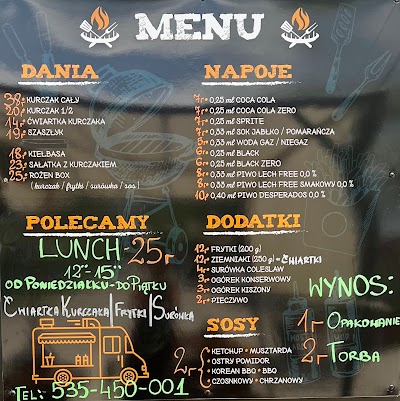 MENU
DANIA
38.- KURCZAK CAŁY
20.- KURCZAK 1/2
14.- ĆWIARTKA KURCZAKA
19.- SZASZŁYK
18.- KIEŁBASA
23.- SAŁATKA Z KURCZAKIEM
25.- ROŻEN BOX
(kurczak / frytki / surówka / sos)
NAPOJE
7.- 0,25 ml COCA COLA
7.- 0,25 ml COCA COLA ZERO
7.- 0,25 ml SPRITE
7.- 0,33 ml SOK JABŁKO / POMARAŃCZA
5.- 0,33 ml WODA GAZ / NIEGAZ
6.- 0,25 ml BLACK
6.- 0,25 ml BLACK ZERO
8.- 0,33 ml PIWO LECH FREE 0,0 %
8.- 0,33 ml PIWO LECH FREE SMAKOWY 0,0 %
10.- 0,40 ml PIWO DESPERADOS 0,0 %
POLECAMY
LUNCH-25.-
12°°-15°°
OD PONIEDZIAŁKU-DO PIĄTKU
ĆWIARTKA KURCZAKA | FRYTKI | SURÓWKA
TEL: 535-450-001
DODATKI
12.- FRYTKI (200 g)
12.- ZIEMNIAKI (250 g) = ĆWIARTKI
4.- SURÓWKA COLESLAW
3.- OGÓREK KONSERWOWY
3.- OGÓREK KISZONY
2.- PIECZYWO
SOSY
2.-
KETCHUP • MUSZTARDA
OSTRY POMIDOR
KOREAN BBQ • BBQ
CZOSNKOWY • CHRZANOWY
WYNOS:
1.- OPAKOWANIE
2.- TORBA